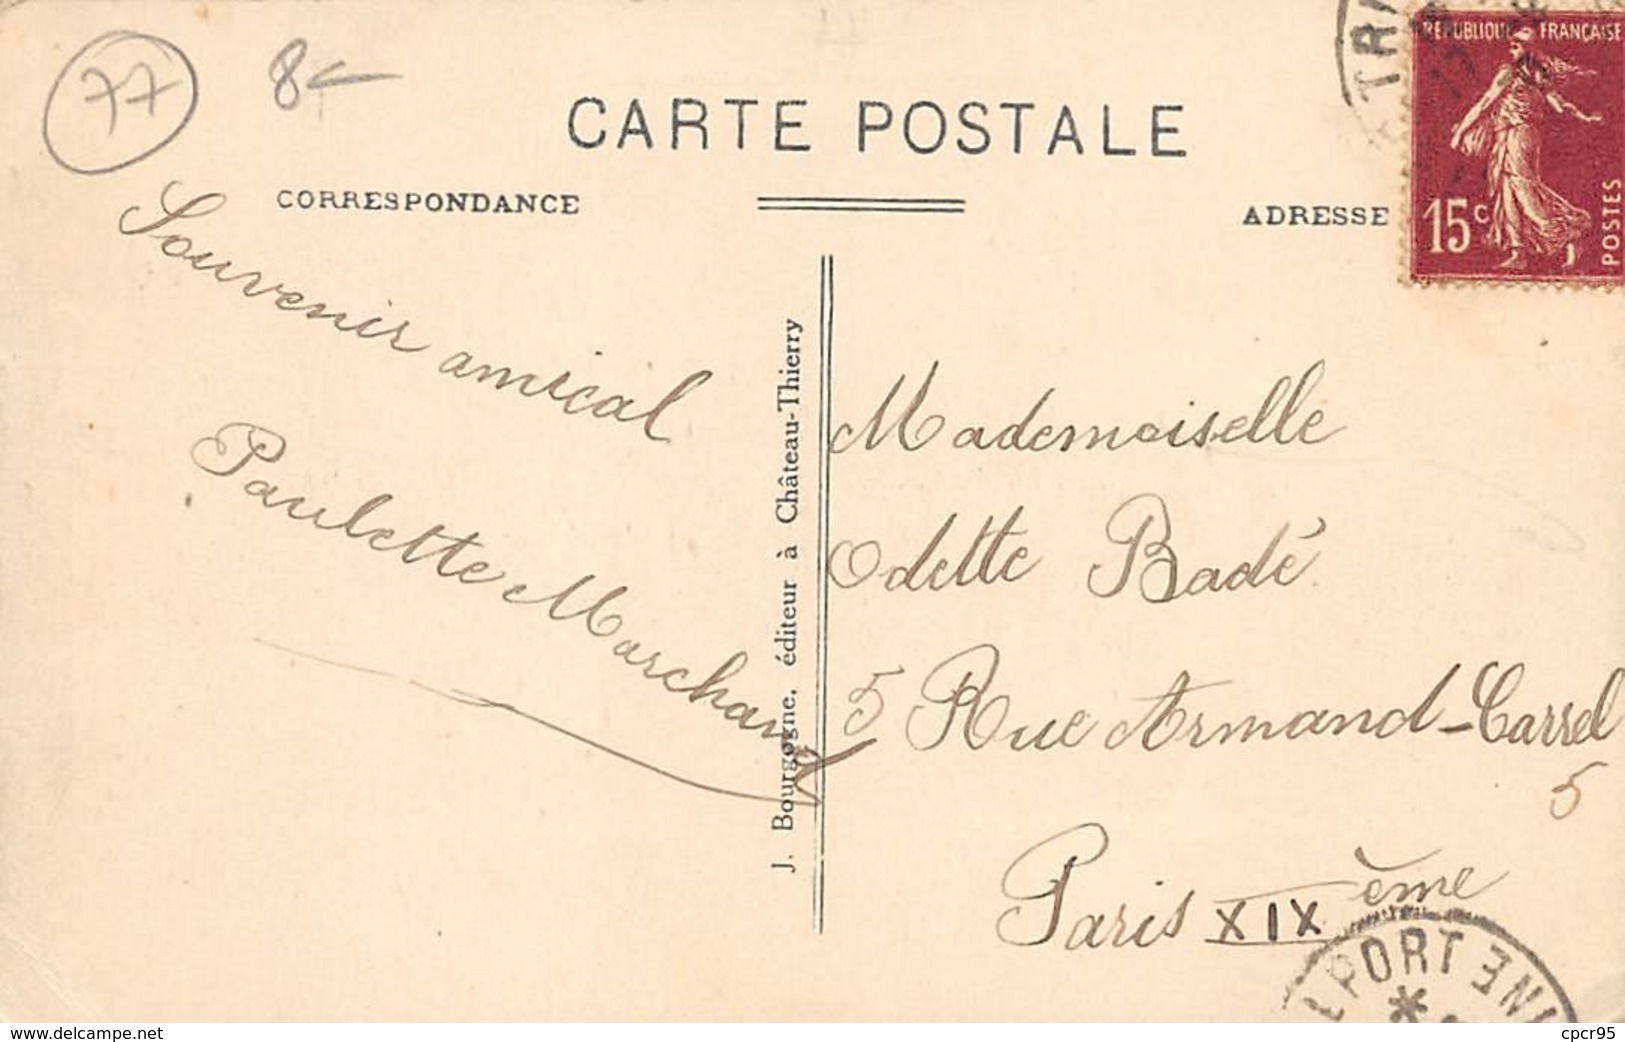 77
8
CARTE POSTALE
CORRESPONDANCE
ADRESSE
RÉPUBLIQUE FRANÇAISE
15c
POSTES
Souvenir amical
Paulette Marchand
J. Bourgogne, éditeur à Château-Thierry
Mademoiselle
Odette Badé
5 Rue Armand-Carrel
5
Paris XIX ème
www.delcampe.net
cpcr95